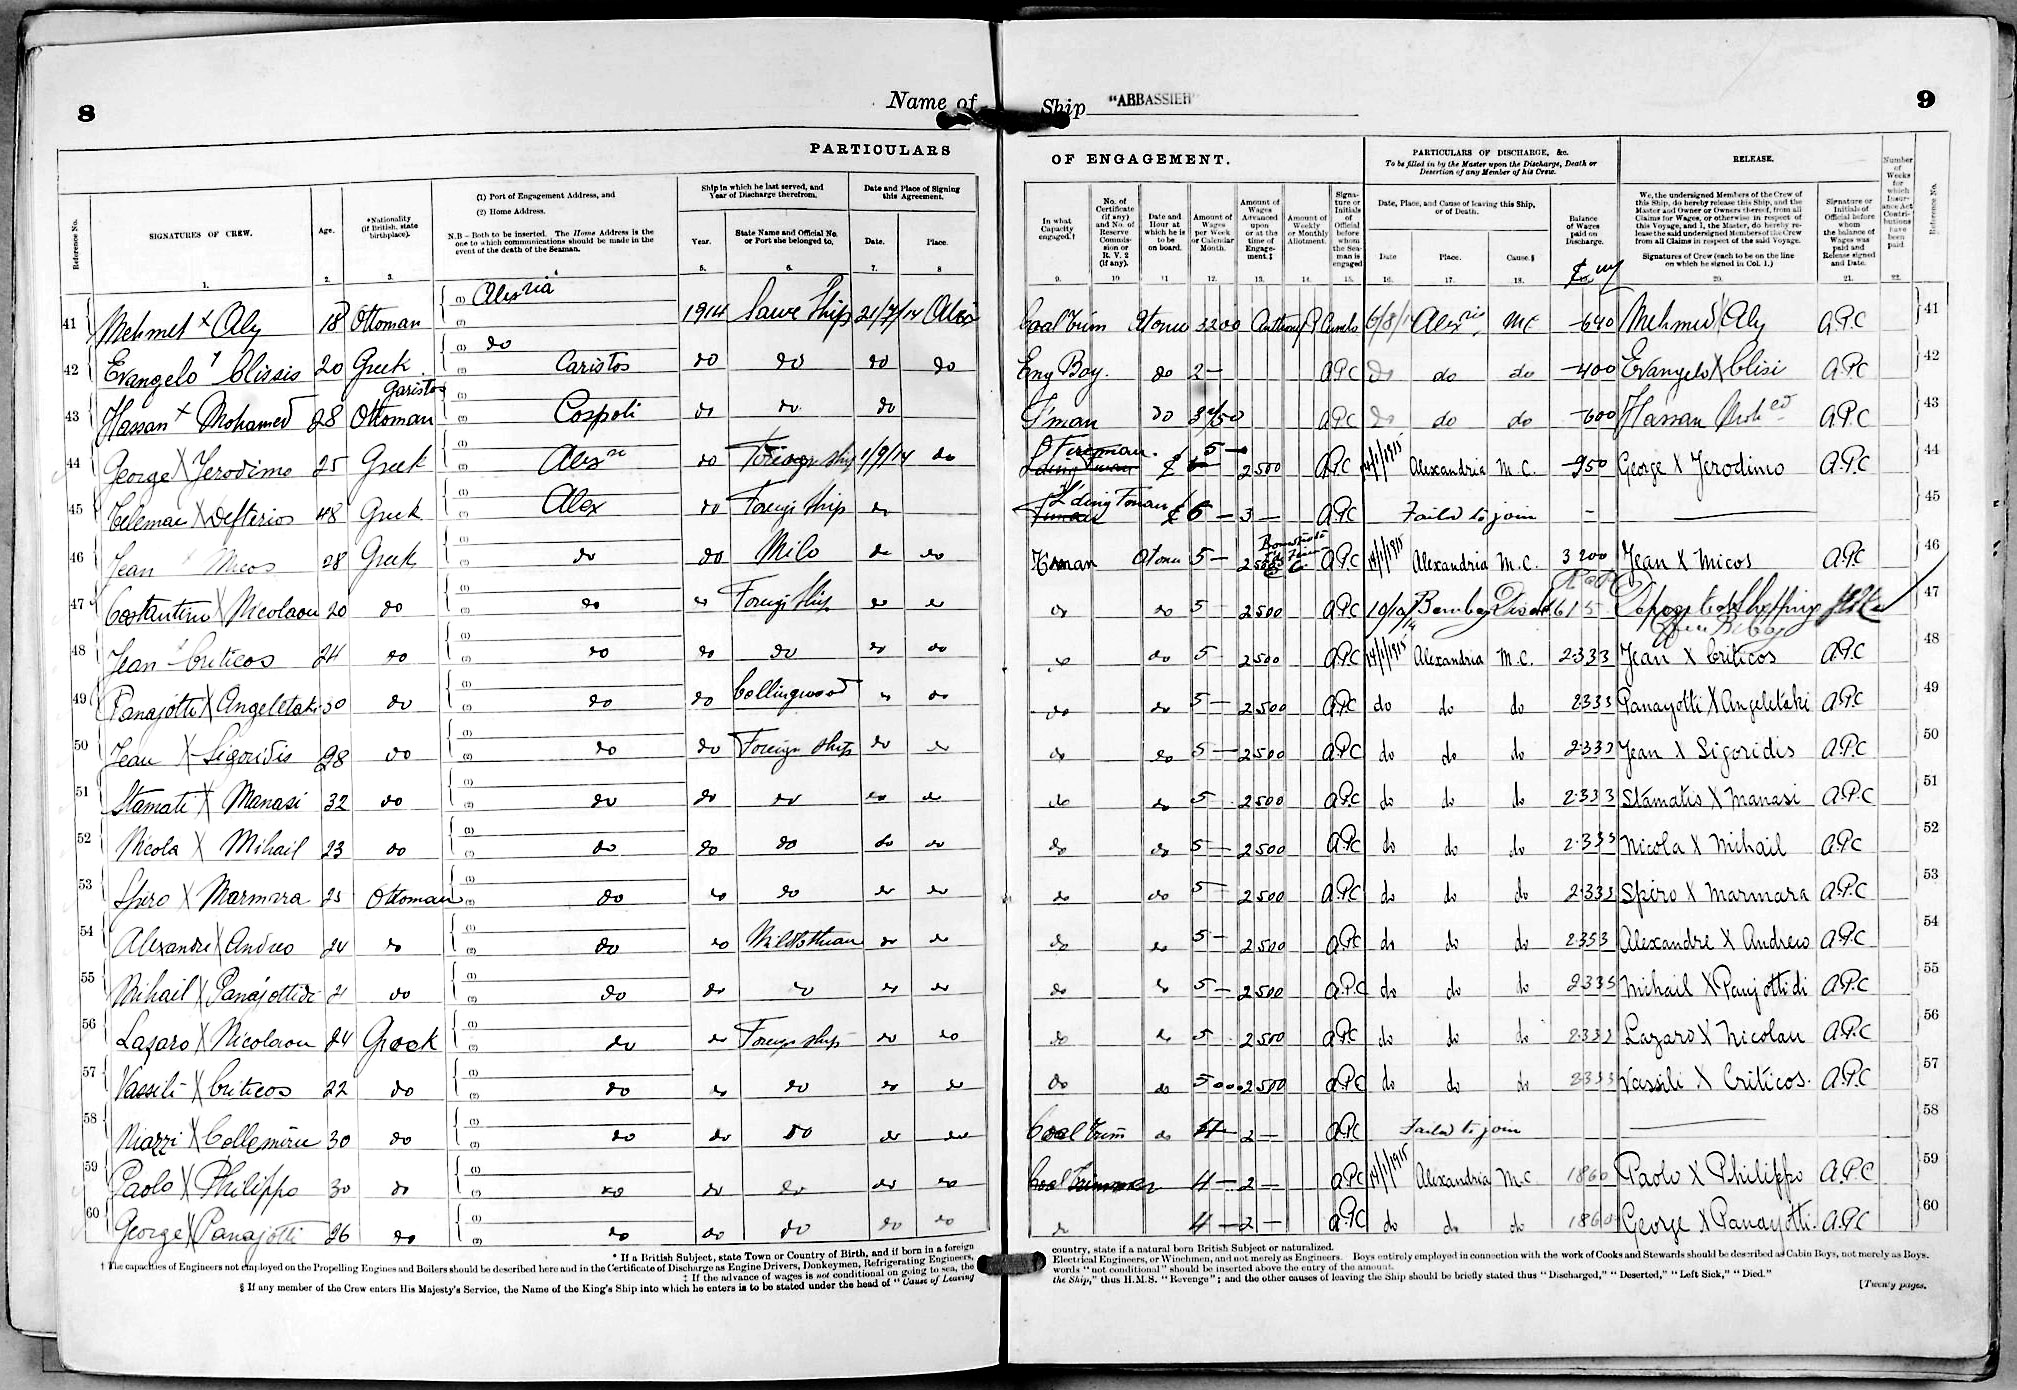 8
Name of Ship "ABBASSIEH"
9
PARTICULARS OF ENGAGEMENT.
PARTICULARS OF DISCHARGE, &c.
To be filled in by the Master upon the Discharge, Death or Desertion of any Member of his Crew.
RELEASE.
Reference No.
SIGNATURES OF CREW.
Age.
*Nationality (if British, state birthplace).
(1) Port of Engagement Address, and
(2) Home Address.
N.B – Both to be inserted. The Home Address is the one to which communications should be made in the event of the death of the Seaman.
Ship in which he last served, and Year of Discharge therefrom.
Year.
State Name and Official No. or Port she belonged to.
Date and Place of Signing this Agreement.
Date.
Place.
In what Capacity engaged.†
No. of Certificate (if any) and No. of Reserve Commission or R. V. 2 (if any).
Date and Hour at which he is to be on board.
Amount of Wages per Week or Calendar Month.
Amount of Wages Advanced upon or at the time of Engagement.‡
Amount of Weekly or Monthly Allotment.
Signature or Initials of Official before whom the Seaman is engaged
Date, Place, and Cause of leaving this Ship, or of Death.
Date
Place.
Cause.§
Balance of Wages paid on Discharge.
We, the undersigned Members of the Crew of this Ship, do hereby release this Ship, and the Master and Owner or Owners thereof, from all Claims for Wages, or otherwise in respect of this Voyage, and I, the Master, do hereby release the said undersigned Members of the Crew from all Claims in respect of the said Voyage.
Signatures of Crew (each to be on the line on which he signed in Col. 1.)
Signature or Initials of Official before whom the balance of Wages was paid and Release signed and Date.
Number of Weeks for which Insurance Act Contributions have been paid
Reference No.
1. 2. 3. 4 5. 6. 7. 8 9. 10 11 12. 13. 14. 15. 16. 17. 18. 19. 20. 21. 22.
41 Mehmet X Aly 18 Ottoman (1) Alexria (2) 1914 Same Ship 21/7/14 Alex Coal Trim At once 3200 6/8/ Alexria MC 640 Mehmed X Aly A.P.C 41
42 Evangelo X Clissis 20 Greek (1) do (2) Caristos do do do do Eng Boy. do 2 – APC do do do 400 Evangelo X Clisi A.P.C 42
43 Hassan X Mohamed 28 Ottoman (1) (2) Cospoli do do do F'man do APC do do do 600 Hassan Mohed A.P.C 43
44 George X Jerodimo 25 Greek (1) (2) Alex do Foreign ship 1/9/14 do Fireman £ 5 – 2500 APC 14/1/1915 Alexandria M.C. 950 George X Jerodimo A.P.C 44
45 X Defterios 48 Greek (1) (2) Alex do Foreign Ship do L'ding F'man £ 6 – 3 – APC Failed to join – 45
46 Jean Micos 28 Greek (1) (2) do do Milo do do F'man At once 5 – 2500 A.P.C 14/1/1915 Alexandria M.C. 3 200 Jean X Micos A.P.C 46
47 Costantino X Nicolaou 20 do (1) (2) do do Foreign Ship do do do do 5 – 2500 APC 10/10/14 Bombay 615 Shipping 47
48 Jean X Criticos 24 do (1) (2) do do do do do do do 5 – 2500 A.P.C 14/1/1915 Alexandria M.C. 2.333 Jean X Criticos A.P.C 48
49 Panajotti X Angeletaki 30 do (1) (2) do do Collingwood do do do do 5 – 2500 A.P.C do do do 2333 Panayotti X Angeletaki A.P.C 49
50 Jean X Sigoridis 28 do (1) (2) do do Foreign ship do do do do 5 – 2500 A.P.C do do do 2.333 Jean X Sigoridis A.P.C 50
51 Stamati X Manasi 32 do (1) (2) do do do do do do do 5 2500 A.P.C do do do 2.333 Stamatis X Manasi A.P.C 51
52 Nicola X Mihail 23 do (1) (2) do do do do do do do 5 – 2500 A.P.C do do do 2.333 Nicola X Mihail A.P.C 52
53 Spiro X Marmara 25 Ottoman (1) (2) do do do do do do do 5 – 2500 A.P.C do do do 2.333 Spiro X Marmara A.P.C 53
54 Alexandre X Andreo 24 do (1) (2) do do do do do do 5 – 2500 A.P.C do do do 2353 Alexandre X Andrew A.P.C 54
55 Mihail X Panajottidi 21 do (1) (2) do do do do do do do 5 – 2500 A.P.C do do do 2335 Mihail X Panjottidi A.P.C 55
56 Lazaro X Nicolaou 24 Greek (1) (2) do do Foreign ship do do do do 5 2500 A.P.C do do do 2.333 Lazaro X Nicolau A.P.C 56
57 Vassili X Criticos 22 do (1) (2) do do do do do do do 5000 2500 A.P.C do do do 2333 Vassili X Criticos. A.P.C 57
58 Niazzi X 30 do (1) (2) do do do do do Coal Trim do 4 – 2 – A.P.C Failed to join 58
59 Paolo X Philippo 30 do (1) (2) do do do do do Coal Trimmer 4 – 2 – A.P.C 14/1/1915 Alexandria M.C 1860 Paolo X Philippo A.P.C 59
60 George X Panajotti 26 do (1) (2) do do do do do do 4 – 2 – A.P.C do do do 1860 George X Panayotti. A.P.C 60
* If a British Subject, state Town or Country of Birth, and if born in a foreign country, state if a natural born British Subject or naturalized.
† The capacities of Engineers not employed on the Propelling Engines and Boilers should be described here and in the Certificate of Discharge as Engine Drivers, Donkeymen, Refrigerating Engineers, Electrical Engineers, or Winchmen, and not merely as Engineers. Boys entirely employed in connection with the work of Cooks and Stewards should be described as Cabin Boys, not merely as Boys.
‡ If the advance of wages is not conditional on going to sea, the words "not conditional" should be inserted above the entry of the amount.
§ If any member of the Crew enters His Majesty's Service, the Name of the King's Ship into which he enters is to be stated under the head of "Cause of Leaving the Ship," thus H.M.S. "Revenge"; and the other causes of leaving the Ship should be briefly stated thus "Discharged," "Deserted," "Left Sick," "Died."
[Twenty pages.